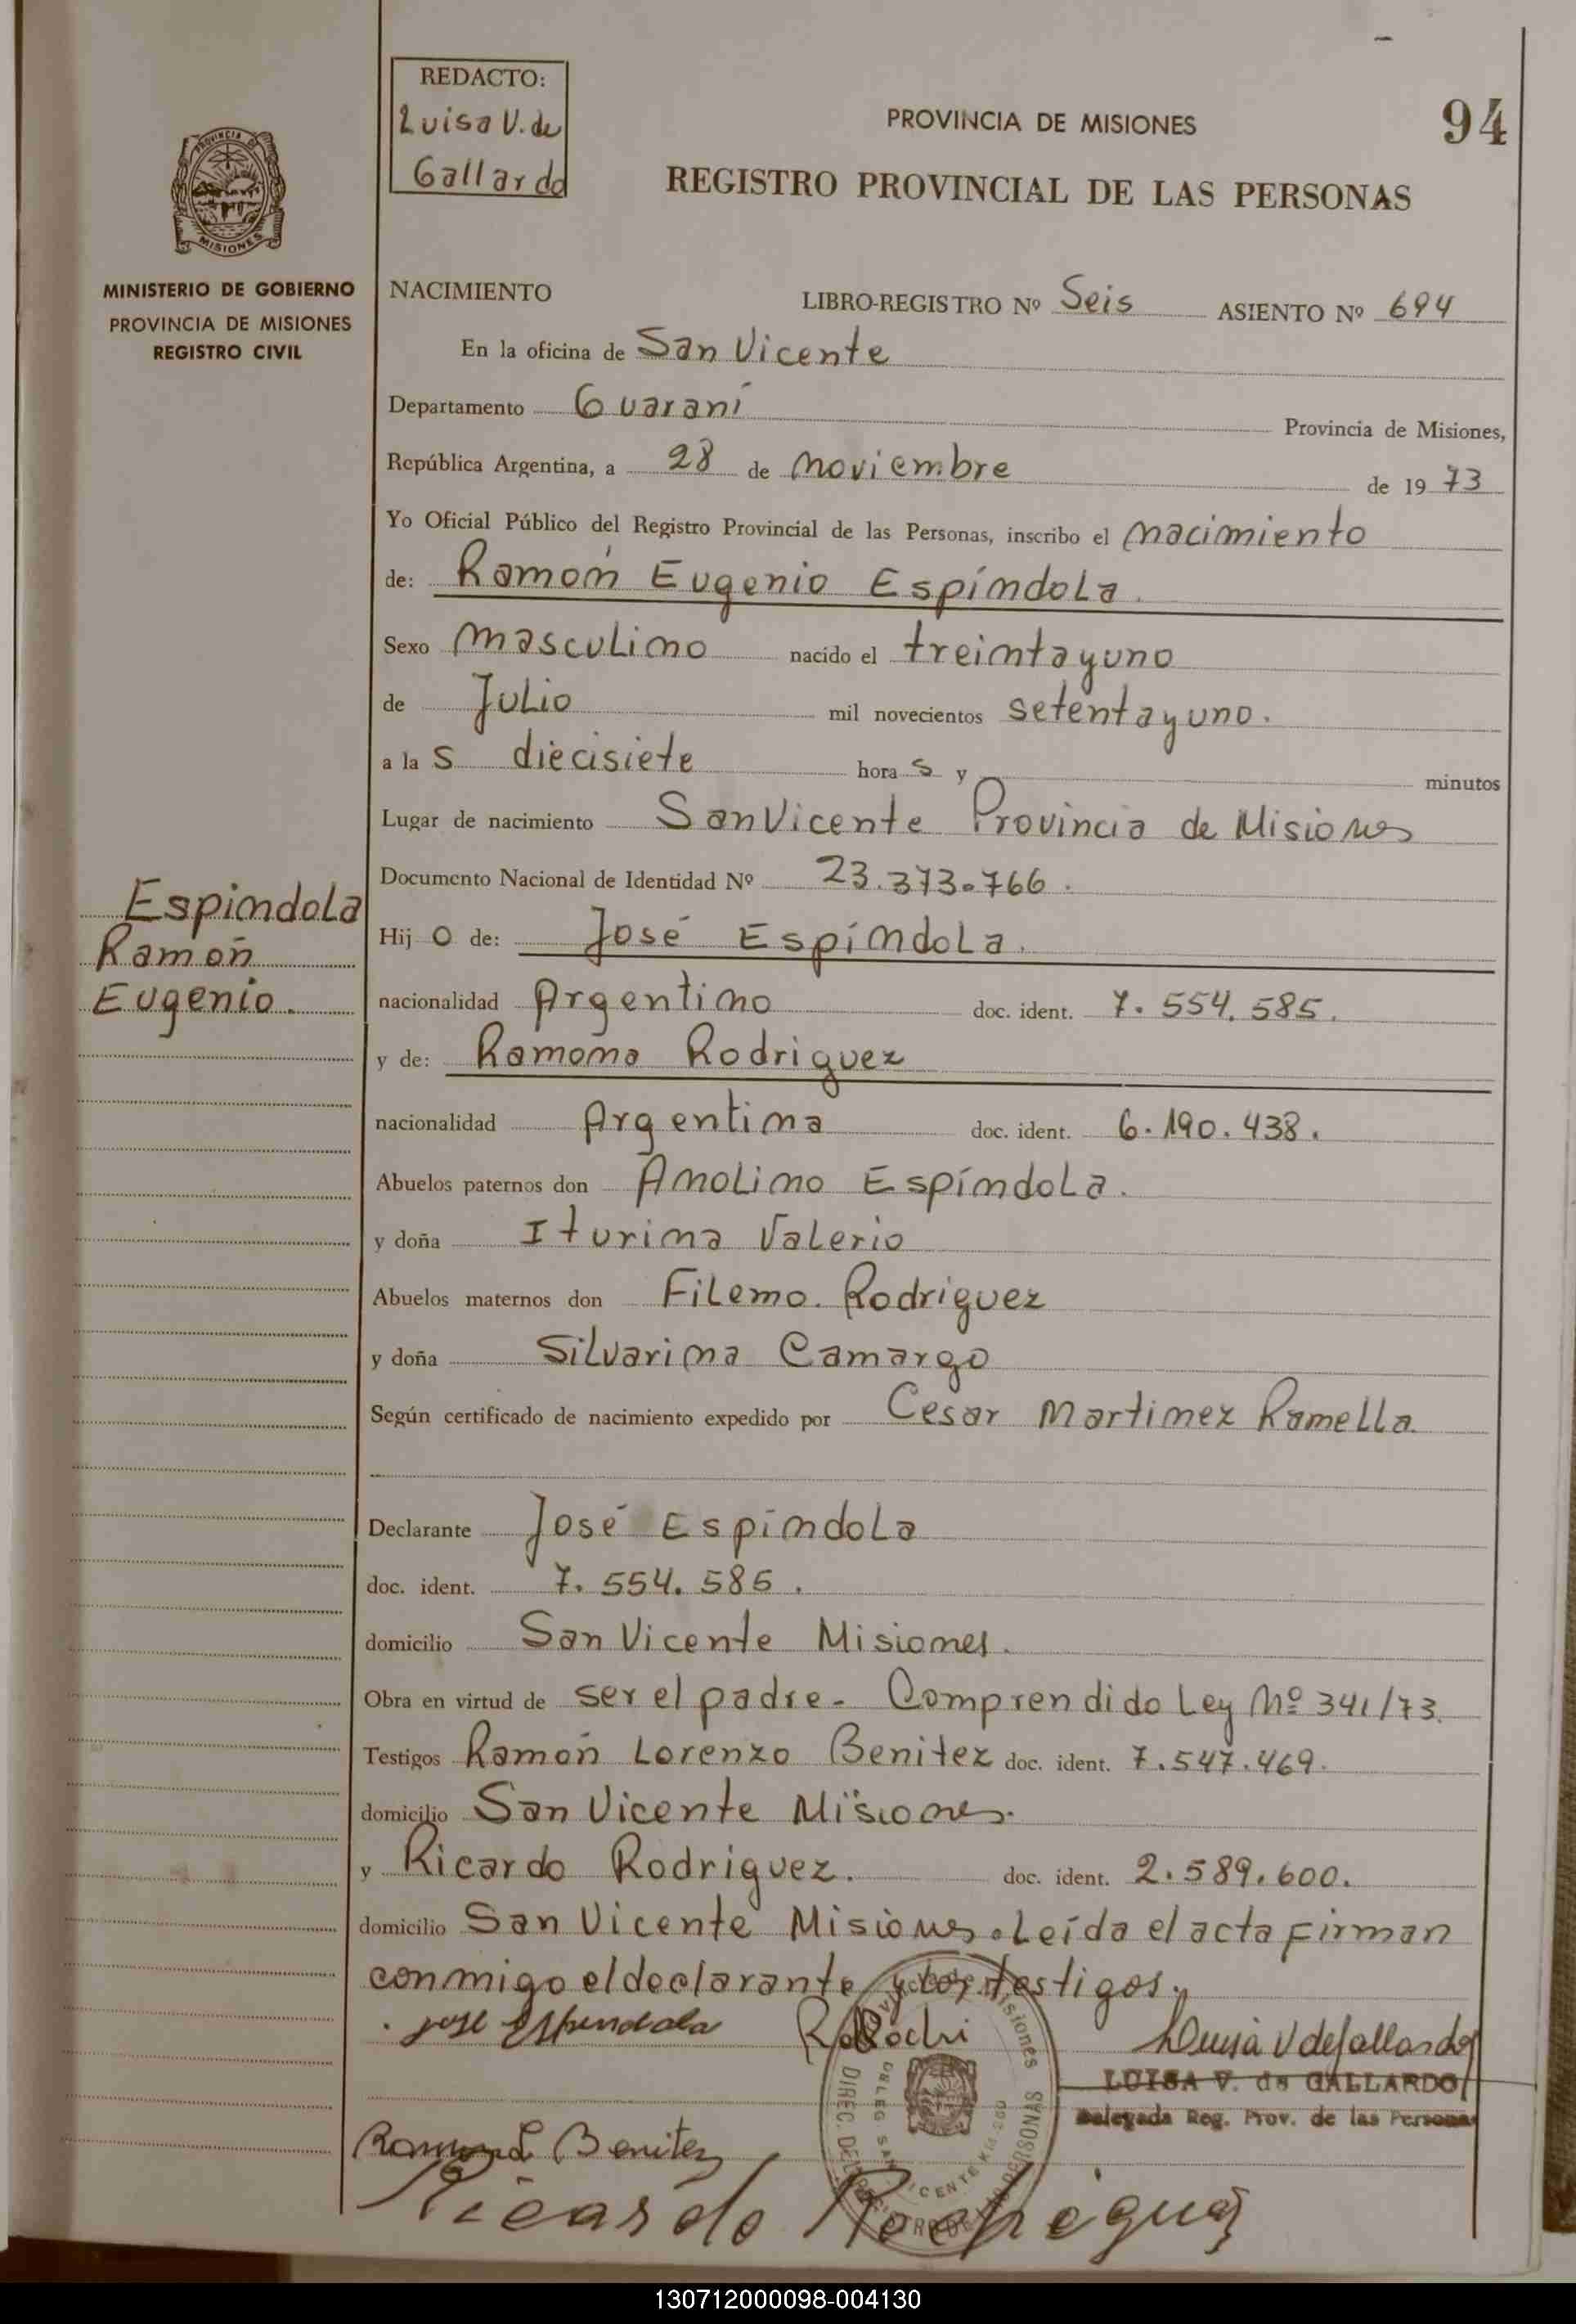 REDACTO:
Luisa V. de
Gallardo
PROVINCIA DE MISIONES
94
REGISTRO PROVINCIAL DE LAS PERSONAS
PROVINCIA
MISIONES
MINISTERIO DE GOBIERNO
PROVINCIA DE MISIONES
REGISTRO CIVIL
NACIMIENTO
LIBRO-REGISTRO Nº Seis ASIENTO Nº 694
En la oficina de San Vicente
Departamento Guaraní Provincia de Misiones,
República Argentina, a 28 de noviembre de 1973
Yo Oficial Público del Registro Provincial de las Personas, inscribo el nacimiento
de: Ramón Eugenio Espíndola.
Sexo masculino nacido el treintayuno
de Julio mil novecientos setentayuno.
a la s diecisiete hora s y minutos
Lugar de nacimiento San Vicente Provincia de Misiones
Documento Nacional de Identidad Nº 23.373.766.
Espindola
Ramón
Eugenio.
Hij o de: José Espíndola.
nacionalidad Argentino doc. ident. 7.554.585.
y de: Ramona Rodriguez
nacionalidad Argentina doc. ident. 6.190.438.
Abuelos paternos don Anolino Espíndola.
y doña Iturina Valerio
Abuelos maternos don Filemo. Rodriguez
y doña Silvarina Camargo
Según certificado de nacimiento expedido por Cesar Martinez Ramella.
Declarante José Espíndola
doc. ident. 7.554.585.
domicilio San Vicente Misiones.
Obra en virtud de ser el padre - Comprendido Ley Nº 341/73.
Testigos Ramón Lorenzo Benitez doc. ident. 7.547.469.
domicilio San Vicente Misiones.
y Ricardo Rodriguez. doc. ident. 2.589.600.
domicilio San Vicente Misiones. Leída el acta firman
conmigo el declarante y los testigos.
jose Espindola
Luisa V de Gallardo
LUISA V. de GALLARDO
Delegada Reg. Prov. de las Personas
Ramon L Benitez
Ricardo Rodriguez
130712000098-004130